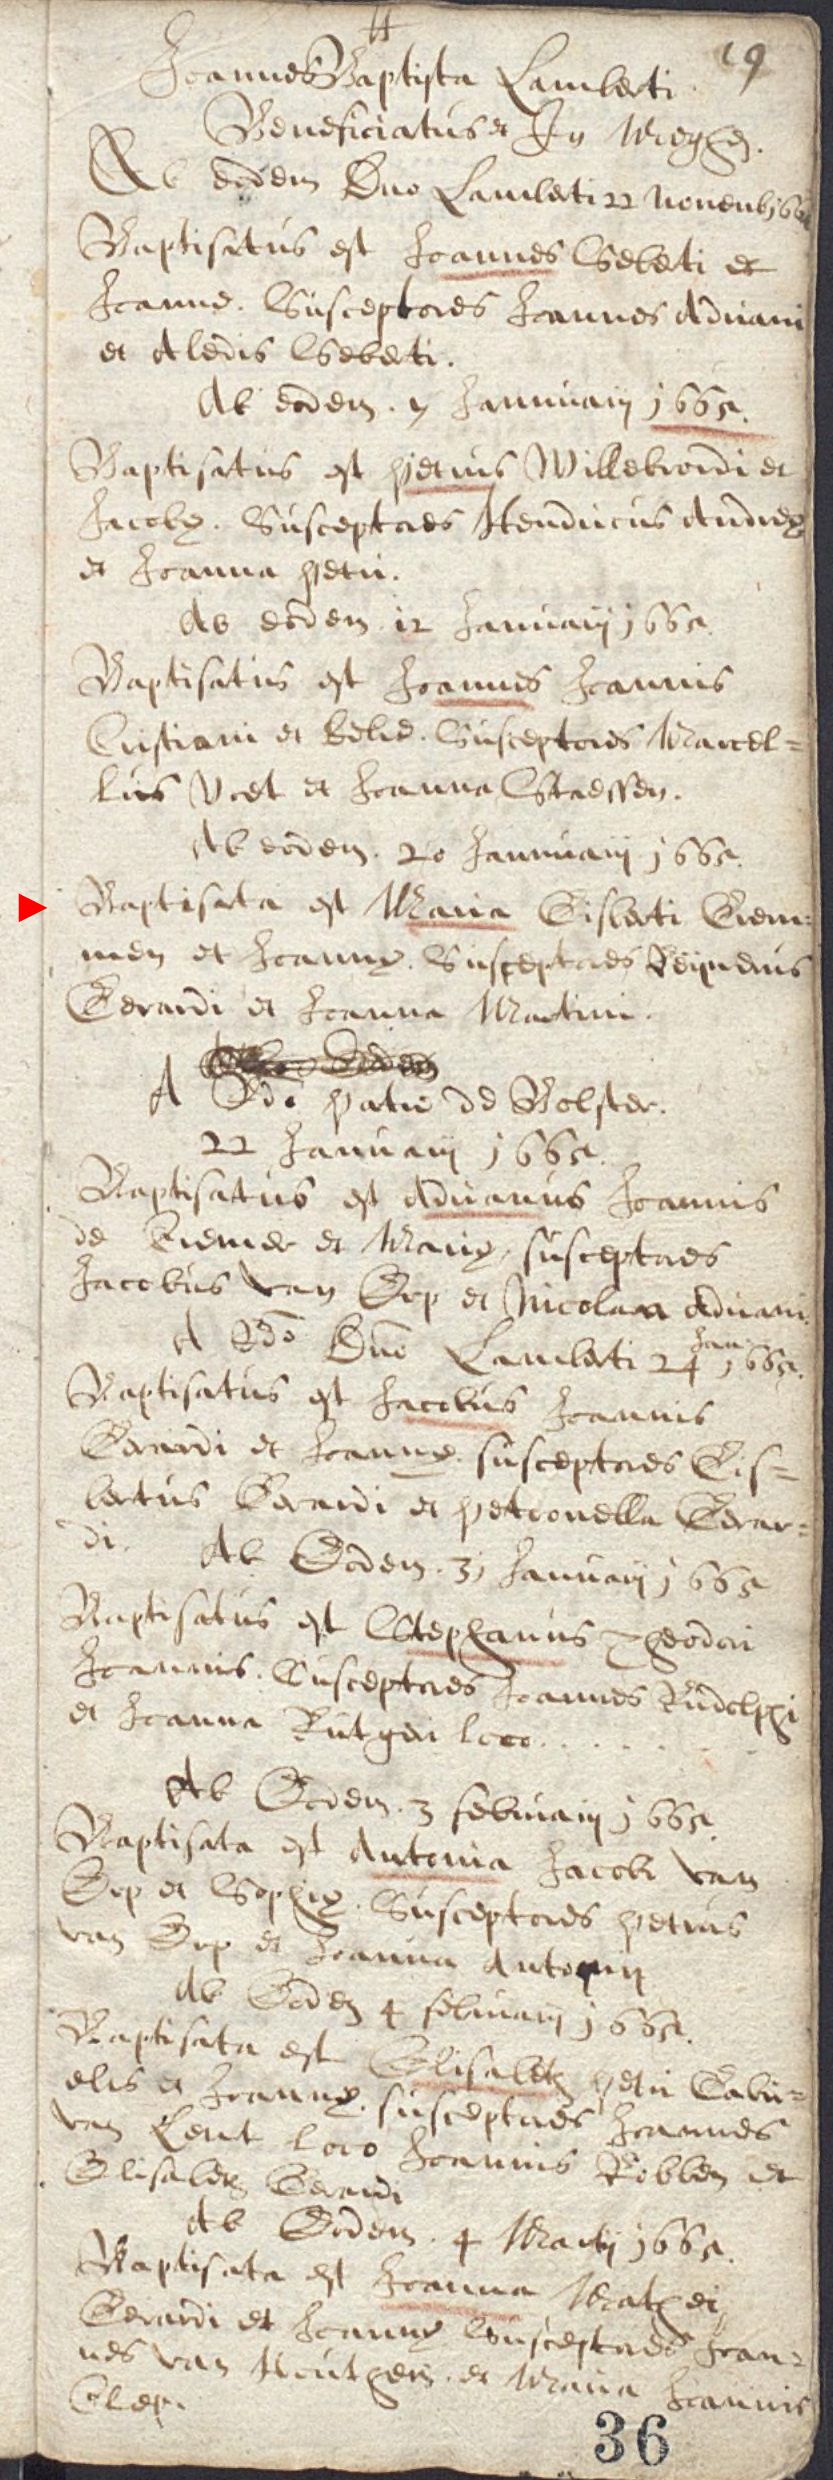 19
Joannes Baptista Lamberti
Beneficiatus et In
Ab eodem Dno Lamberti 22 novemb
Baptisatus est Joannes Seberti et
Joannæ. Susceptores Joannes Adriani
et Aledis Seberti.
Ab eodem. 7 Januuarij 1665.
Baptisatus est Petrus Willebrordi et
Jacobæ. Susceptores Hendricus Andreæ
et Joanna Petri.
Ab eodem 12 Januarij 1665
Baptisatus est Joannes Joannis
Cristiani et Beliæ. Susceptores Marcel=
lus Voet et Joanna Staessen.
Ab eodem. 20 Januuarij 1665.
Baptisata est Maria Gisberti
et Joannæ. Susceptores Reijnerus
Gerardi et Joanna Martini.
A Rdo Patre de Bolster.
22 Januarij 1665.
Baptisatus est Adrianus Joannis
de et Mariæ, susceptores
Jacobus van Erp et Nicolaa Adriani.
A Rdo Dno Lamberti 24 Jan 1665.
Baptisatus est Jacobus Joannis
Gerardi et Joannæ. susceptores Gis=
bertus Gerardi et Petronella Gerar=
di. Ab Eodem. 31 Januarij 1665
Baptisatus est Stephanus Theodori
Joannis. Susceptores Joannes Rudolphi
et Joanna Rutgeri loco . . . . .
Ab Eodem. 3 februarij 1665.
Baptisata est Antonia Jacobi van
Erp et Sophiæ. Susceptores Petrus
van Erp et Joanna Antonij
Ab Eodem 4 februarij 1665.
Baptisata est Elisabeth Petri Gabri=
elis et Joannæ. susceptores Joannes
van Lent loco Joannis Robben et
Elisabeth Gerardi
Ab Eodem. 4 Martij 1665.
Baptisata est Joanna Mathei
Gerardi et Joannæ Susceptores Joan=
nes van et Maria Joannis
36